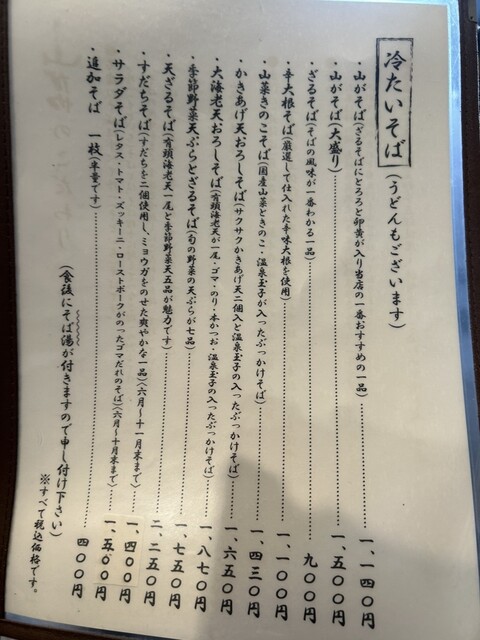 冷たいそば(うどんもございます)
・山がそば(ざるそばにとろろと卵黄が入り当店の一番おすすめの一品)……一、一四〇円
・山がそば(大盛り)……一、五〇〇円
・ざるそば(そばの風味が一番わかる一品)……九〇〇円
・辛大根そば(厳選して仕入れた辛味大根を使用)……一、一〇〇円
・山菜きのこそば(国産山菜ときのこ・温泉玉子が入ったぶっかけそば)……一、四三〇円
・かきあげ天おろしそば(サクサクかきあげ天二個入と温泉玉子の入ったぶっかけそば)……一、六五〇円
・大海老天おろしそば(有頭海老天が一尾・ゴマ・のり・本かつお・温泉玉子の入ったぶっかけそば)……一、八七〇円
・季節野菜天ぷらとざるそば(旬の野菜の天ぷらが七品)……一、七五〇円
・天ざるそば(有頭海老天一尾と季節野菜天五品が魅力です)……二、二五〇円
・すだちそば(すだちを二個使用し、ミョウガをのせた爽やかな一品)(六月〜十一月末まで)……一、四〇〇円
・サラダそば(レタス・トマト・ズッキーニ・ローストポークがのったゴマだれのそば)(六月〜十月末まで)……一、五〇〇円
・追加そば 一枚(半量です)……四〇〇円
(食後にそば湯が付きますので申し付け下さい)
※すべて税込価格です。